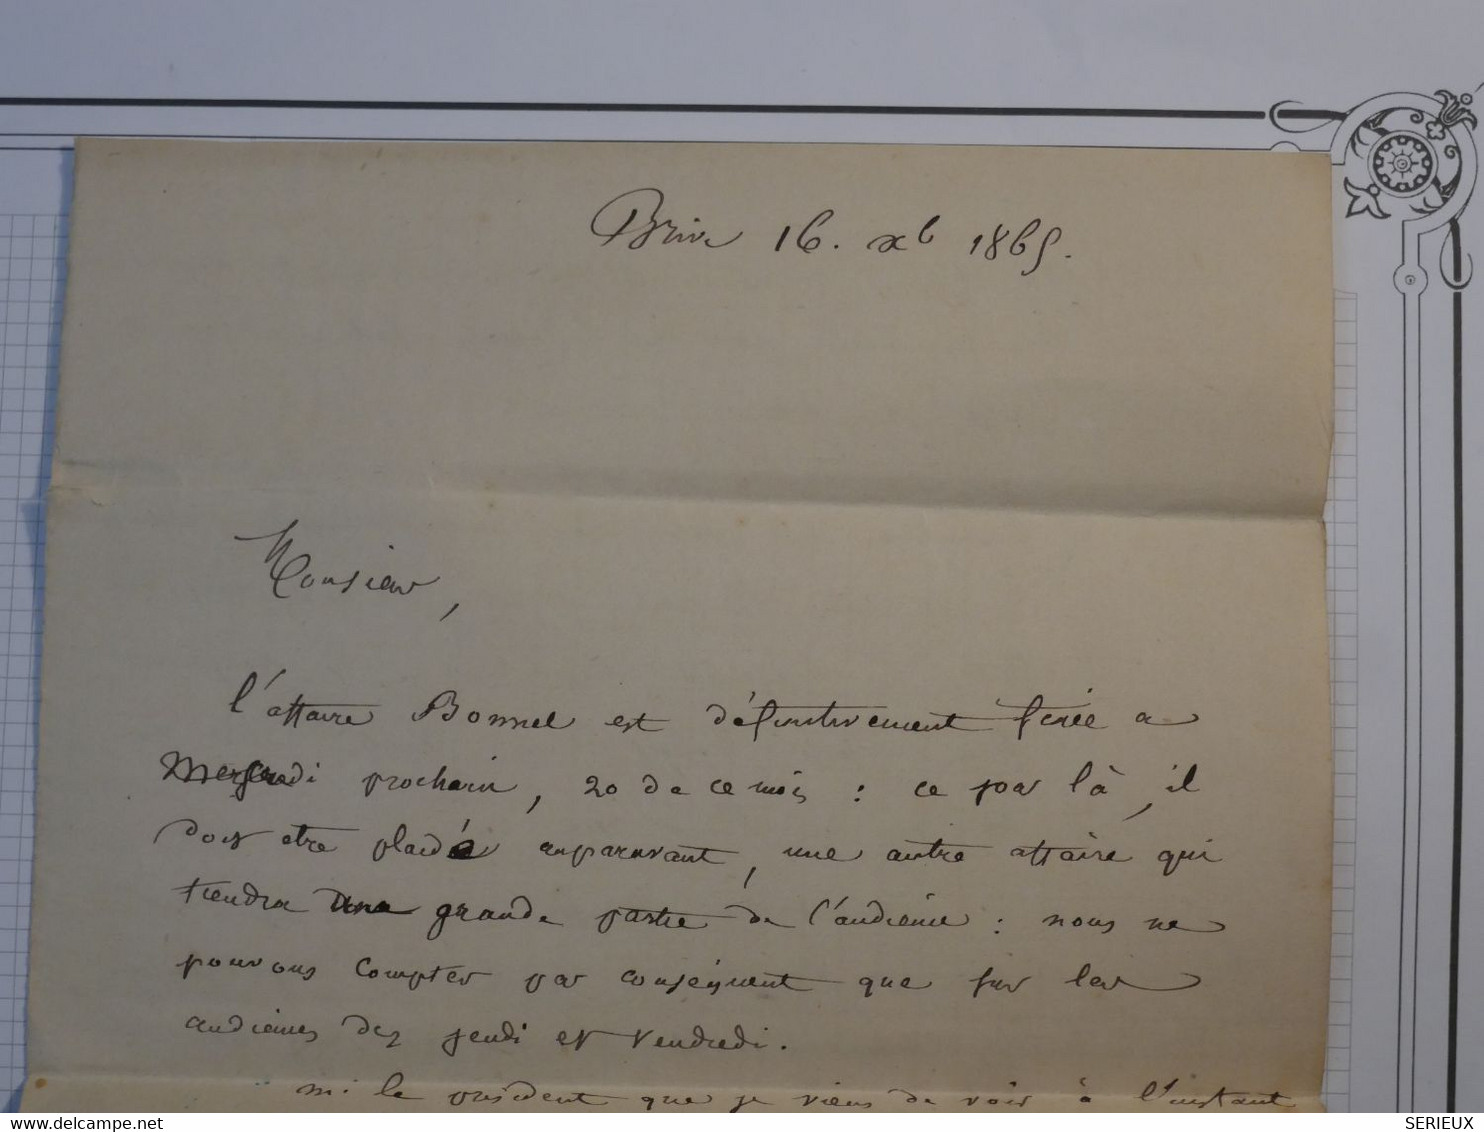 Brive 16. xb 1865.
Monsieur,
l'affaire Bonnel est définitivement fixée a
Mercredi prochain, 20 de ce mois : ce jour là, il
doit etre plaidé auparavant, une autre affaire qui
tiendra une grande partie de l'audience : nous ne
pouvons compter par conséquent que sur les
audiences des jeudi et vendredi.
M. le président que je viens de voir à l'instant
delcampe.net
SERIEUX